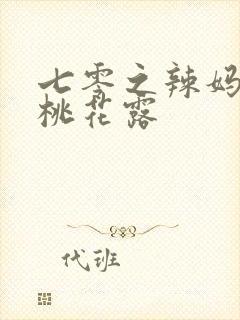 七零之辣妈
桃花露
代班